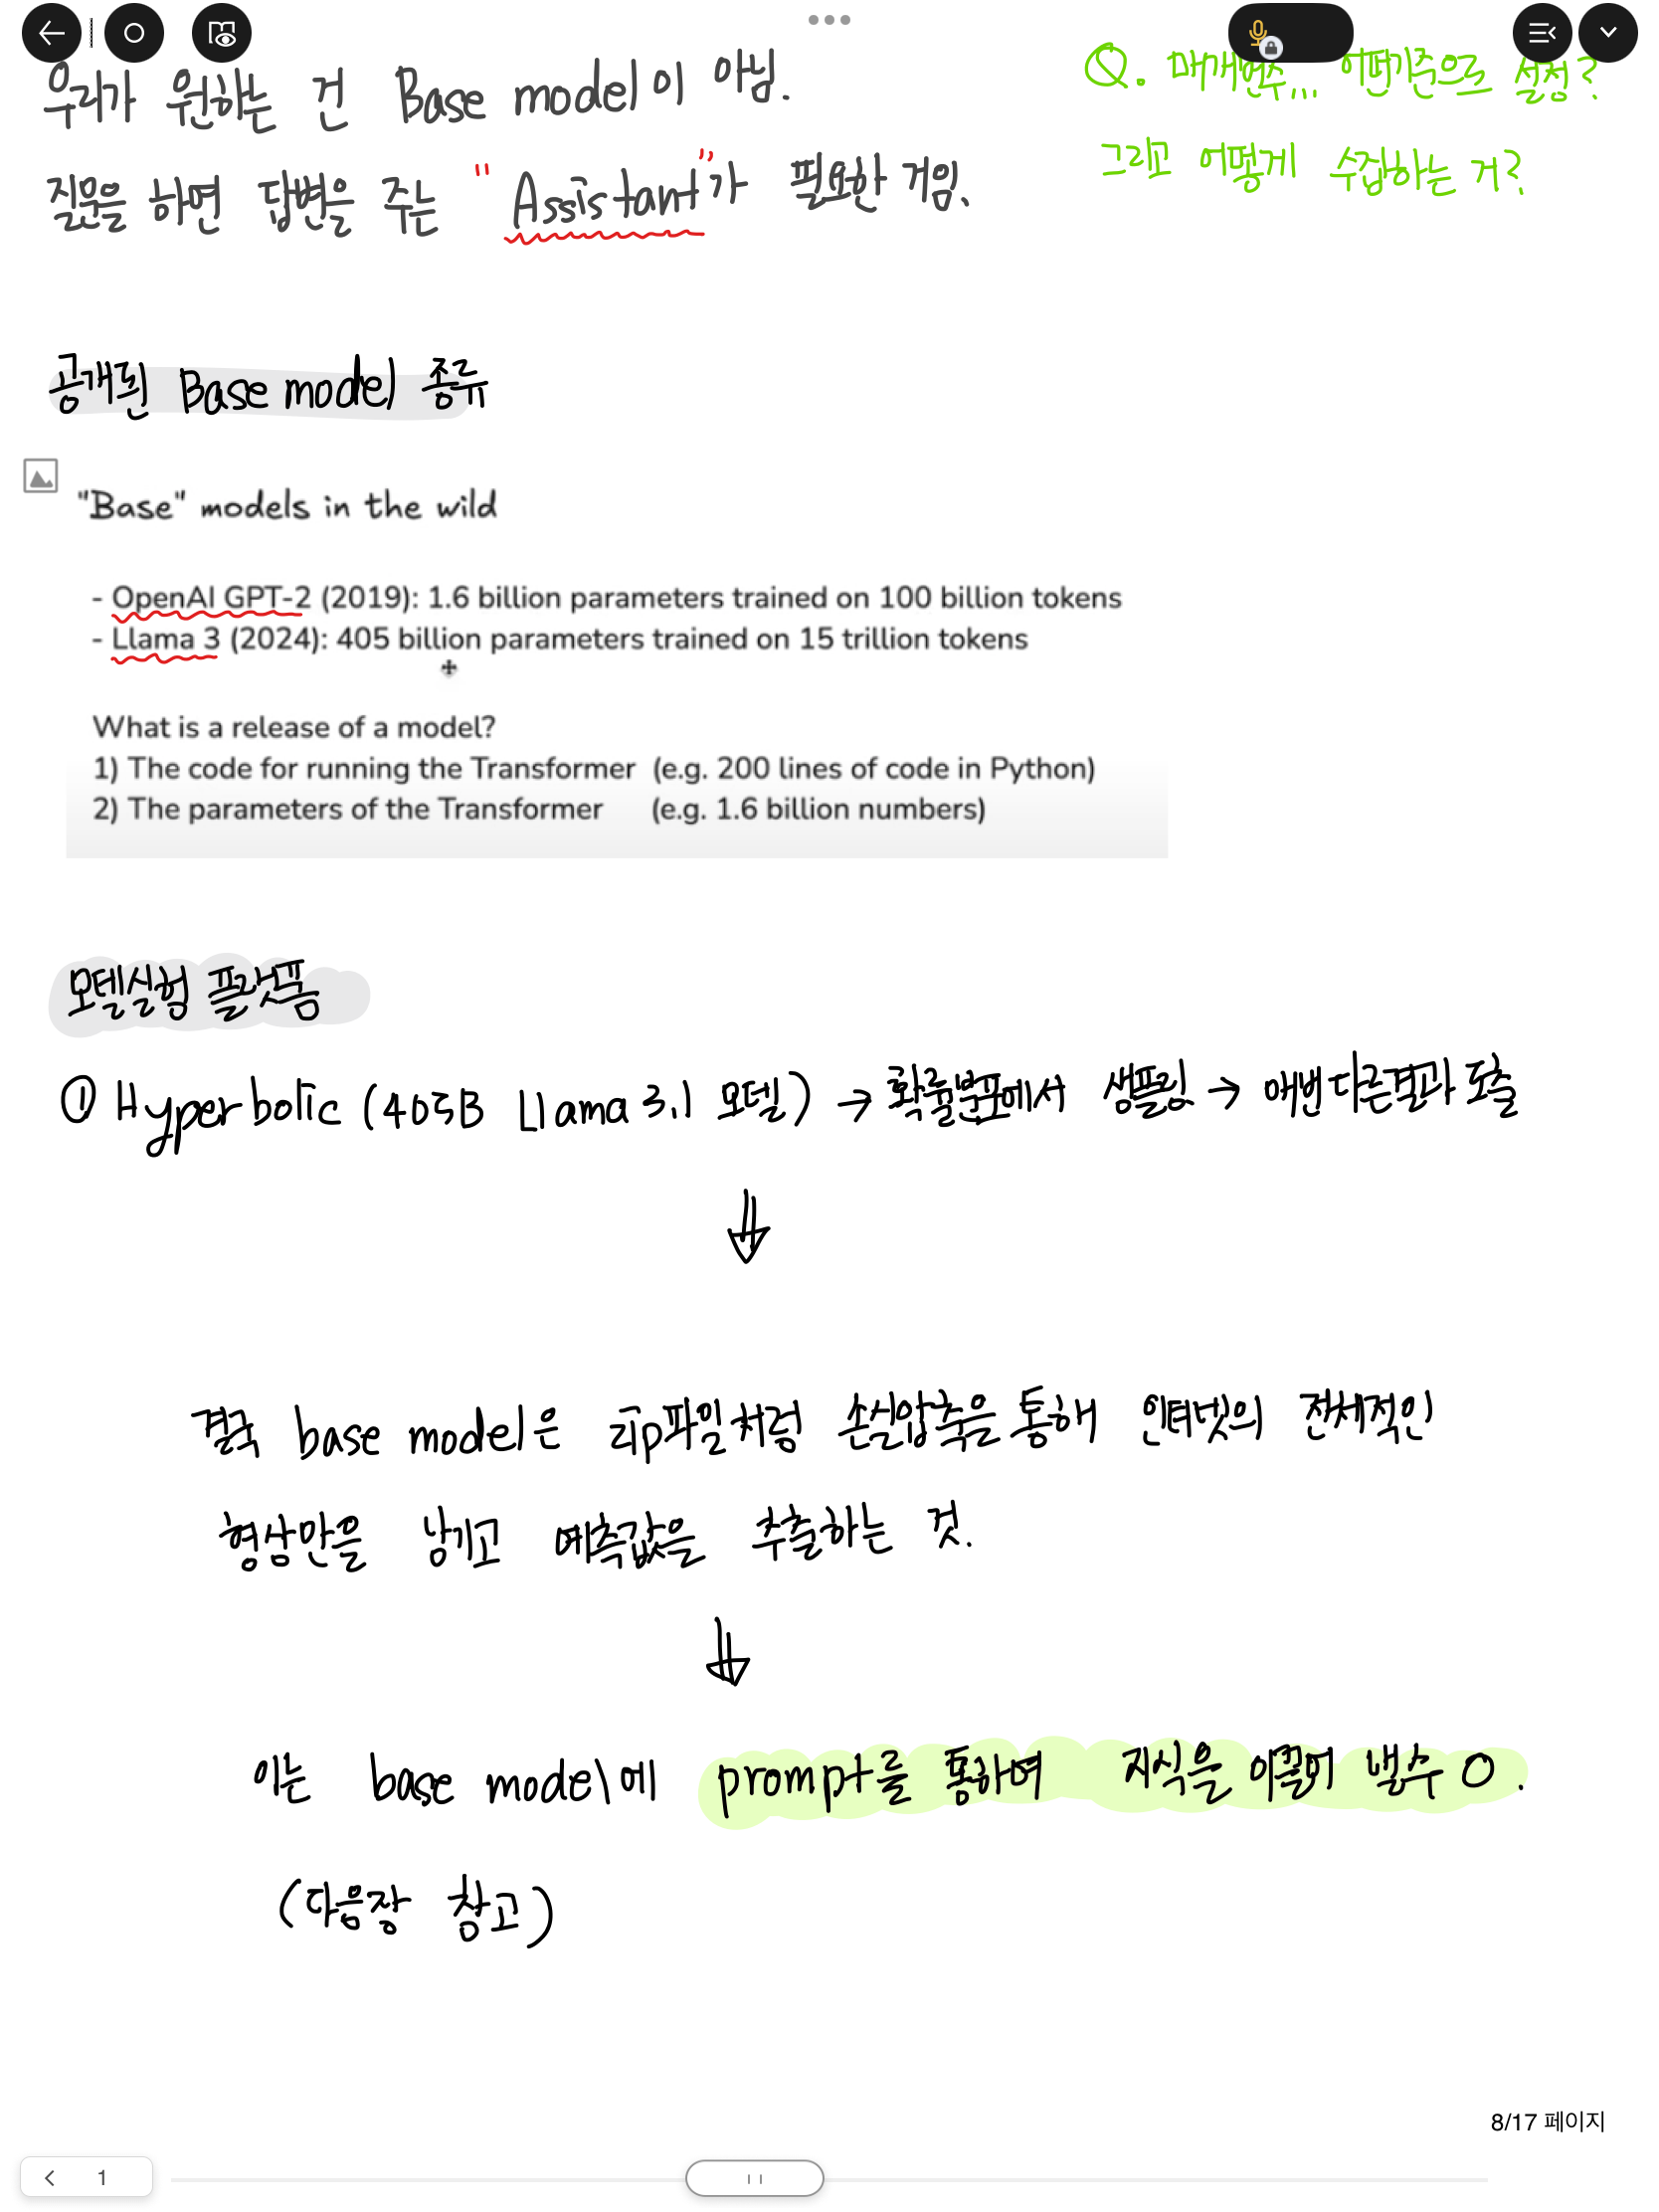 우리가 원하는 건 Base model이 아님.
질문을 하면 답변을 주는 "Assistant"가 필요한 거임.
Q. 매개변수... 어떤기준으로 설정?
그리고 어떻게 수집하는 거?
공개된 Base model 종류
"Base" models in the wild
- OpenAI GPT-2 (2019): 1.6 billion parameters trained on 100 billion tokens
- Llama 3 (2024): 405 billion parameters trained on 15 trillion tokens
What is a release of a model?
1) The code for running the Transformer (e.g. 200 lines of code in Python)
2) The parameters of the Transformer (e.g. 1.6 billion numbers)
모델실험 플랫폼
① Hyperbolic (405B Llama 3.1 모델) → 확률분포에서 샘플링 → 매번 다른결과 도출
↓
결국 base model은 zip파일처럼 손실압축을 통해 인터넷의 전체적인
형상만을 남기고 예측값을 추출하는 것.
↓
이는 base model에 prompt를 통하여 지식을 이끌어 낼수 O.
(다음장 참고)
8/17 페이지
1